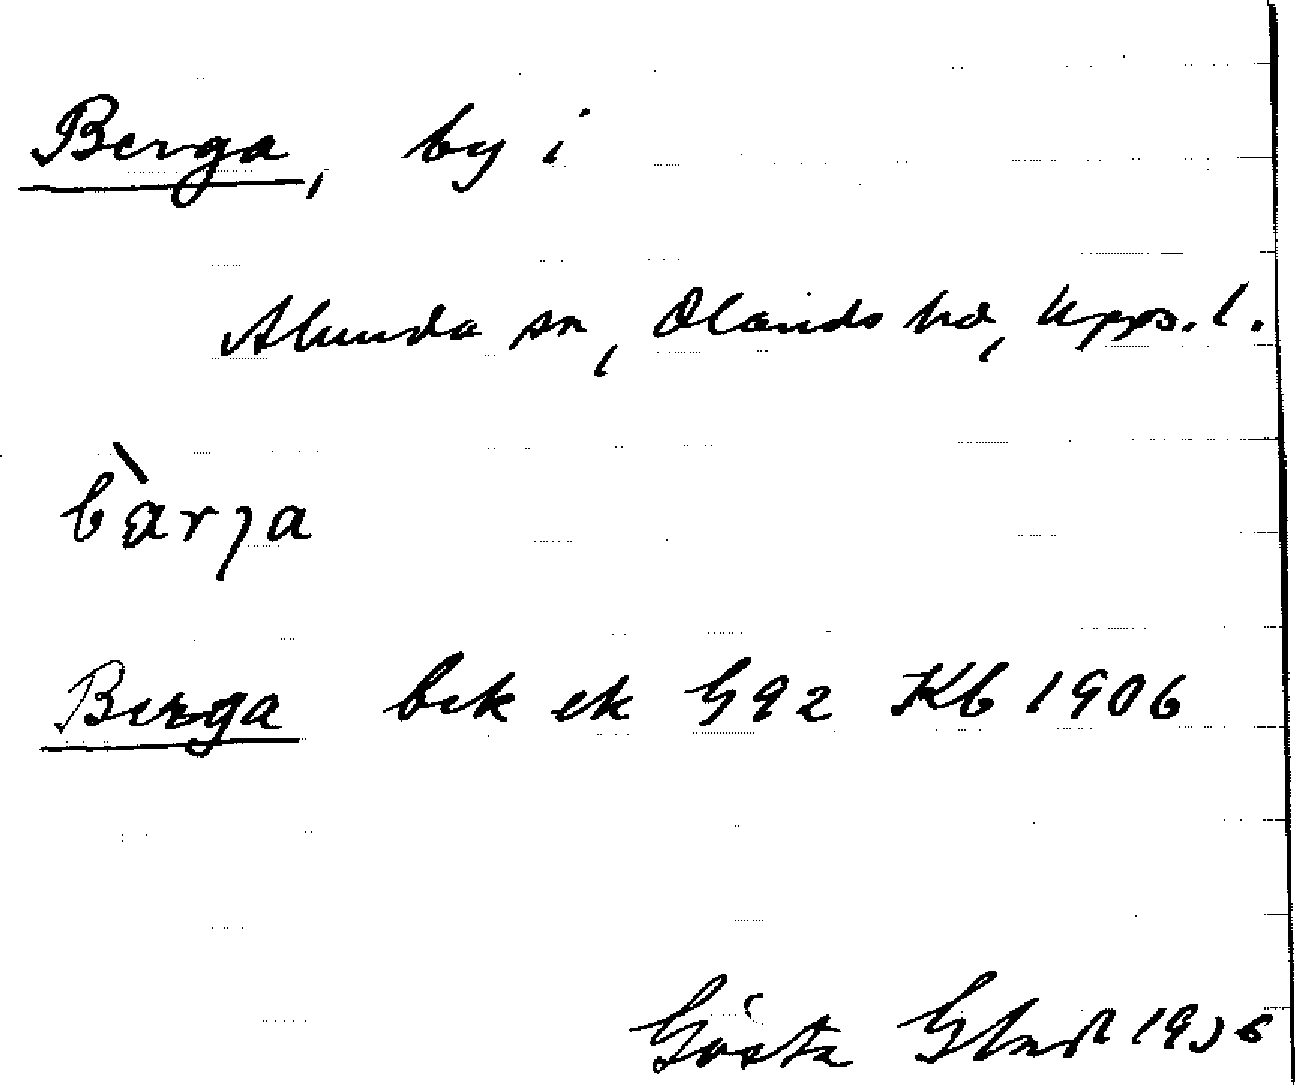 Berga, by i
Alunda sn, Olands hd, Upps. l.
bàrja
Berga bek ek G92 Kb 1906
Gösta 1936